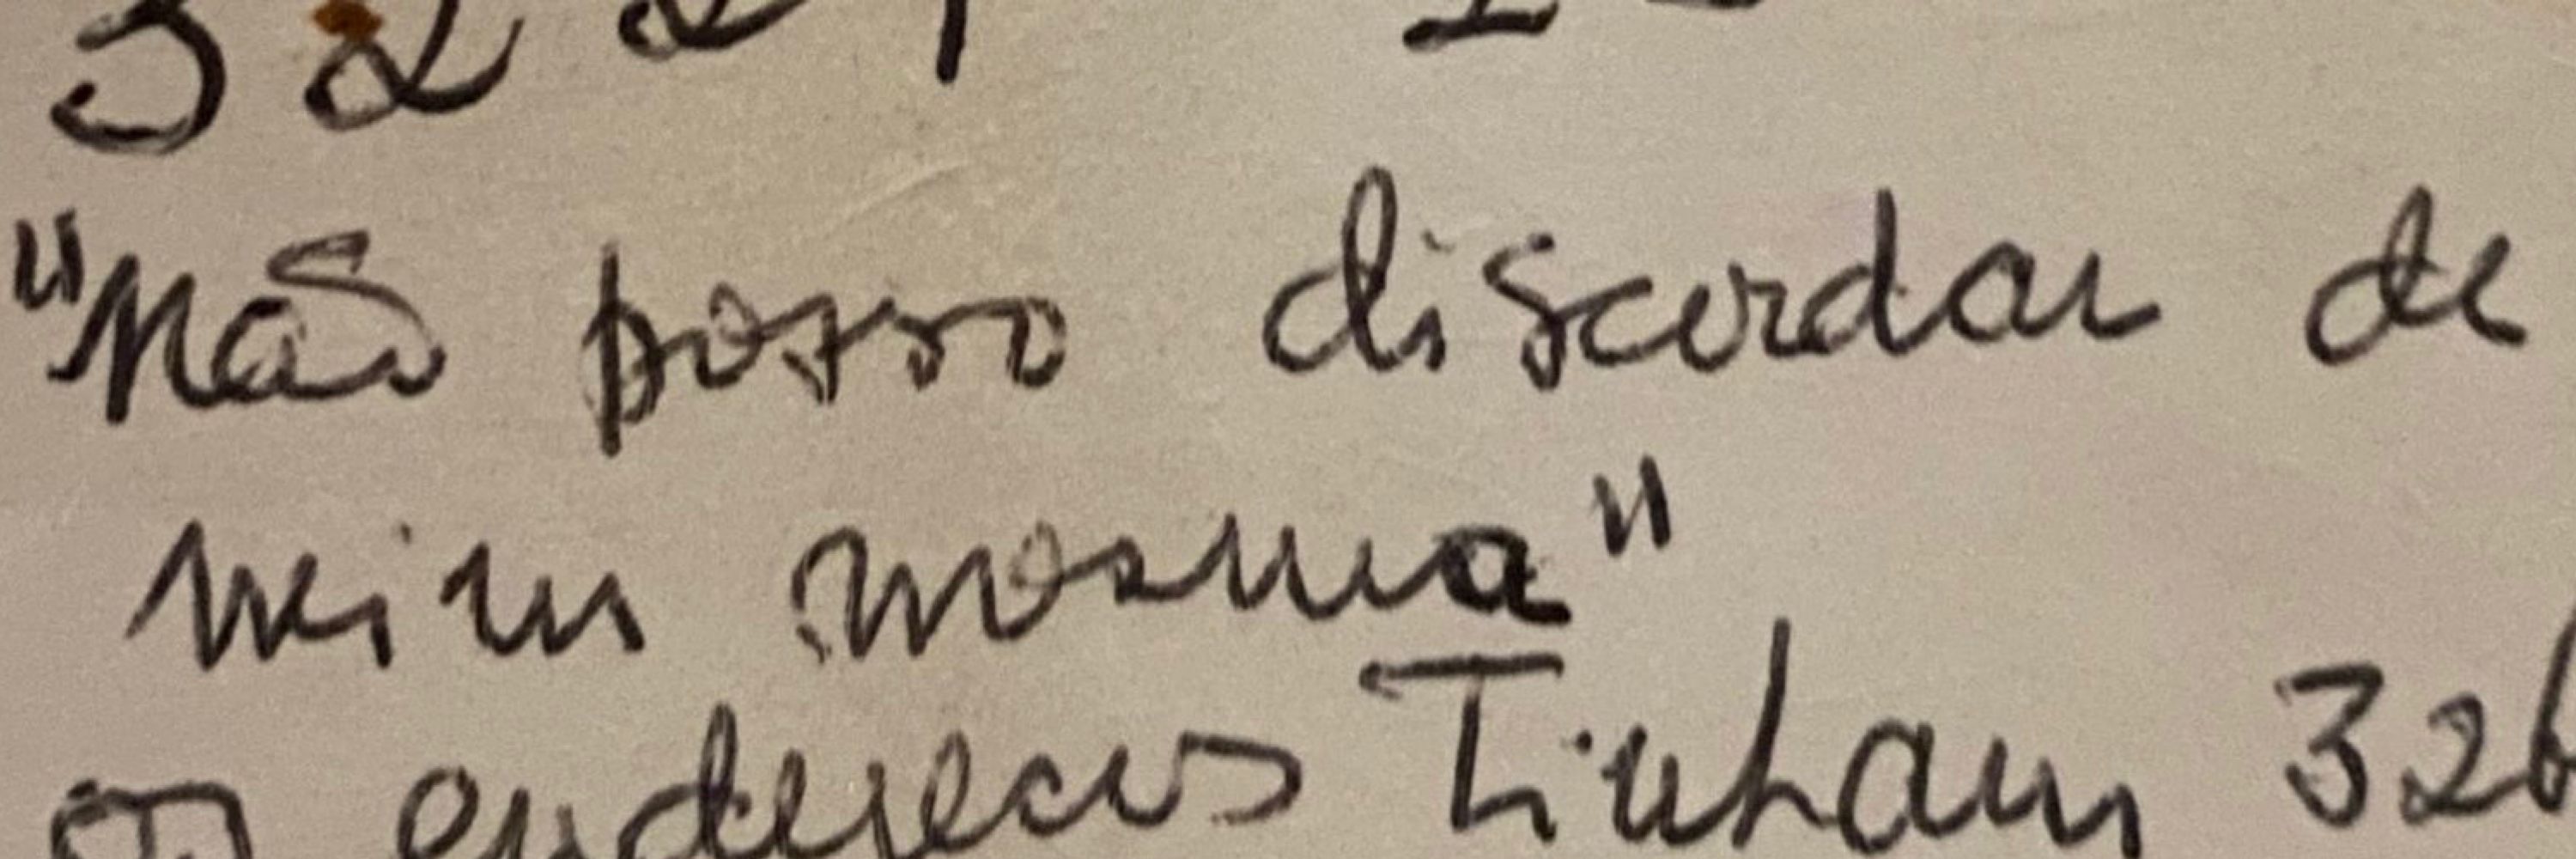 "Não posso discordar de
mim mesma"
os endereços Tinham 326